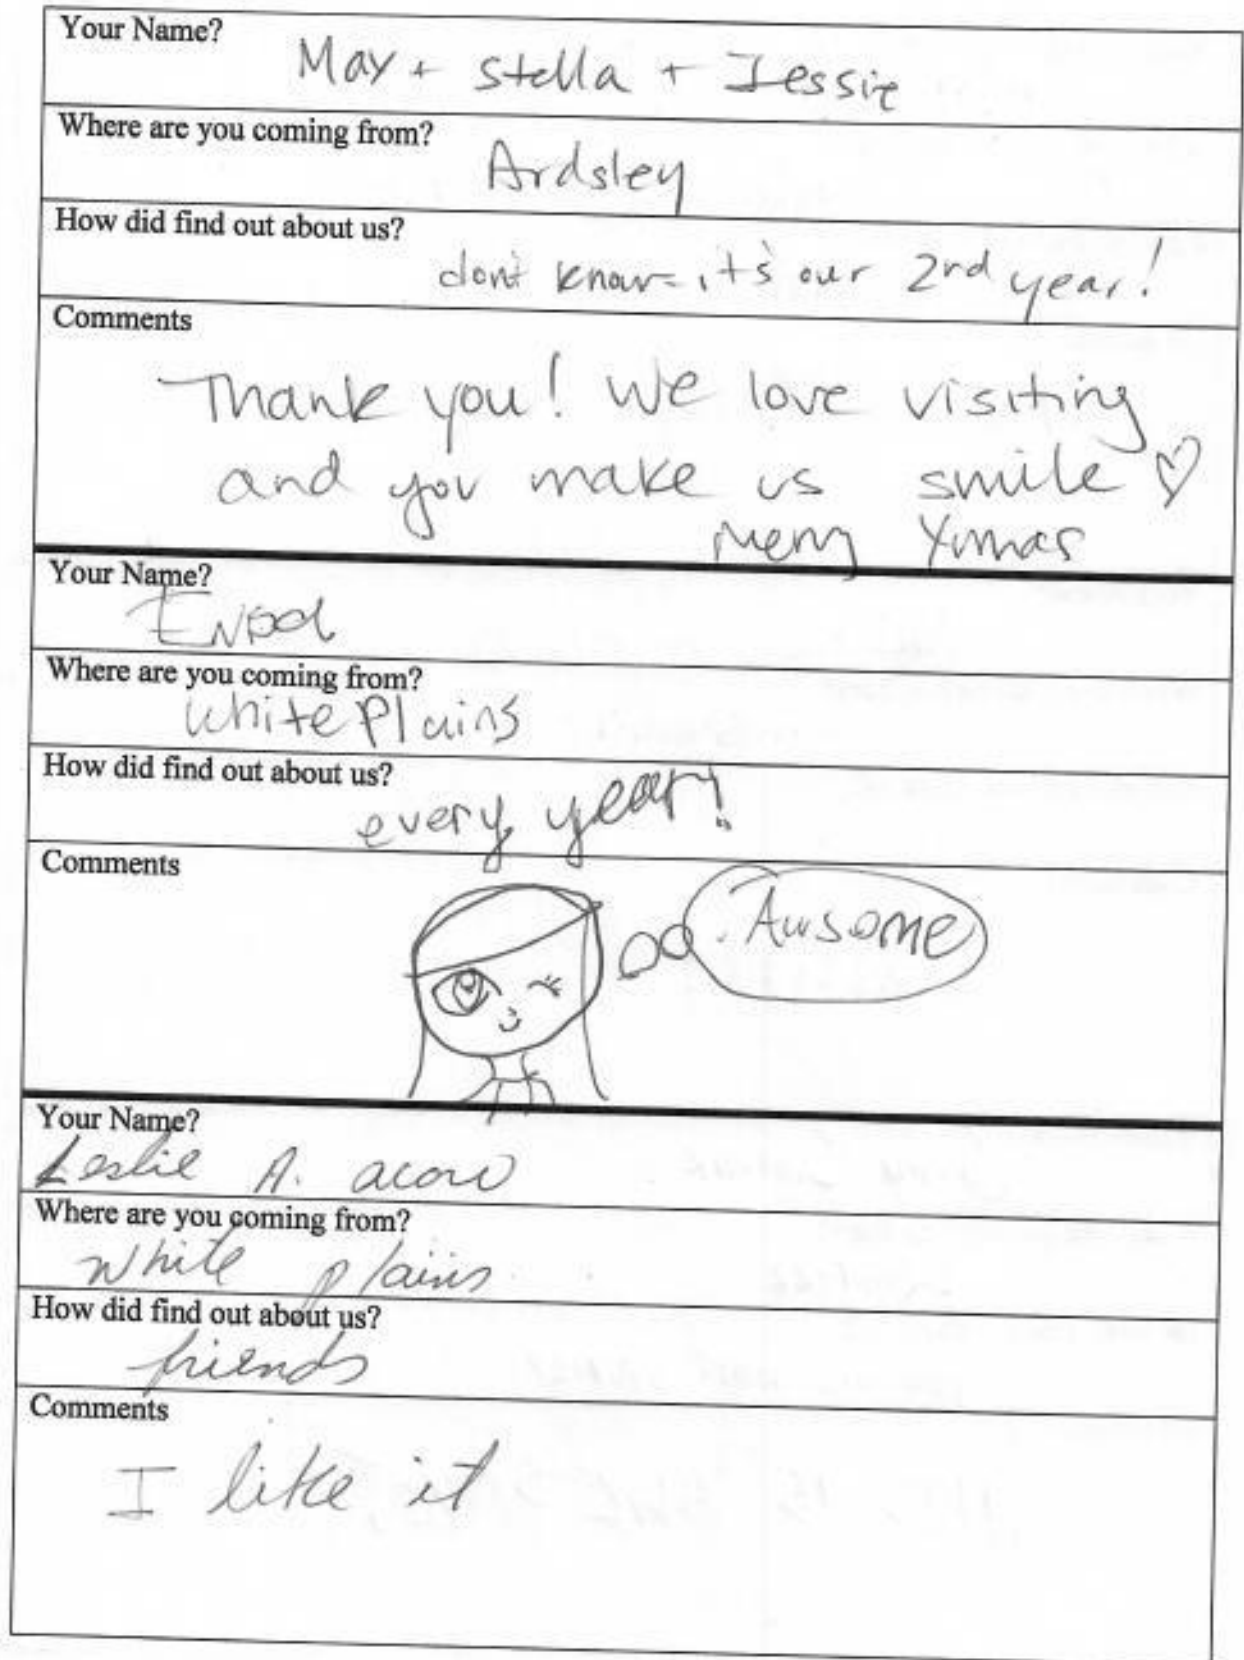 Your Name?
May + Stella + Jessie
Where are you coming from?
Ardsley
How did find out about us?
don't know - it's our 2nd year!
Comments
Thank you! We love visiting
and you make us smile ♡
Merry Xmas
Your Name?
Where are you coming from?
White Plains
How did find out about us?
every year!
Comments
Awsome
Your Name?
Leslie A.
Where are you coming from?
white plains
How did find out about us?
friends
Comments
I like it